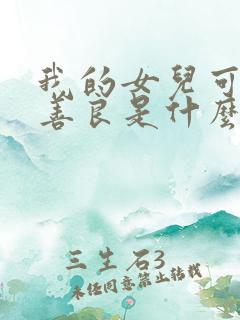 我的女兒可
善良是什麼
三生石3
未经同意禁止转载